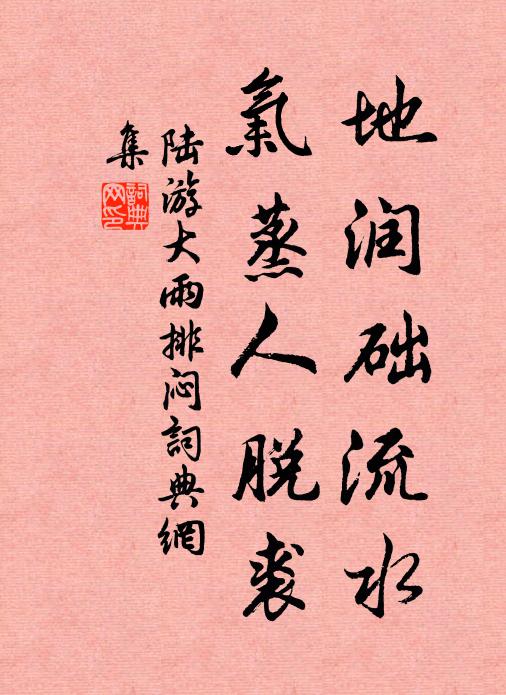 地润础流水
氣蒸人脱裘
陆游大雨排闷詞典網
集
詞典網印